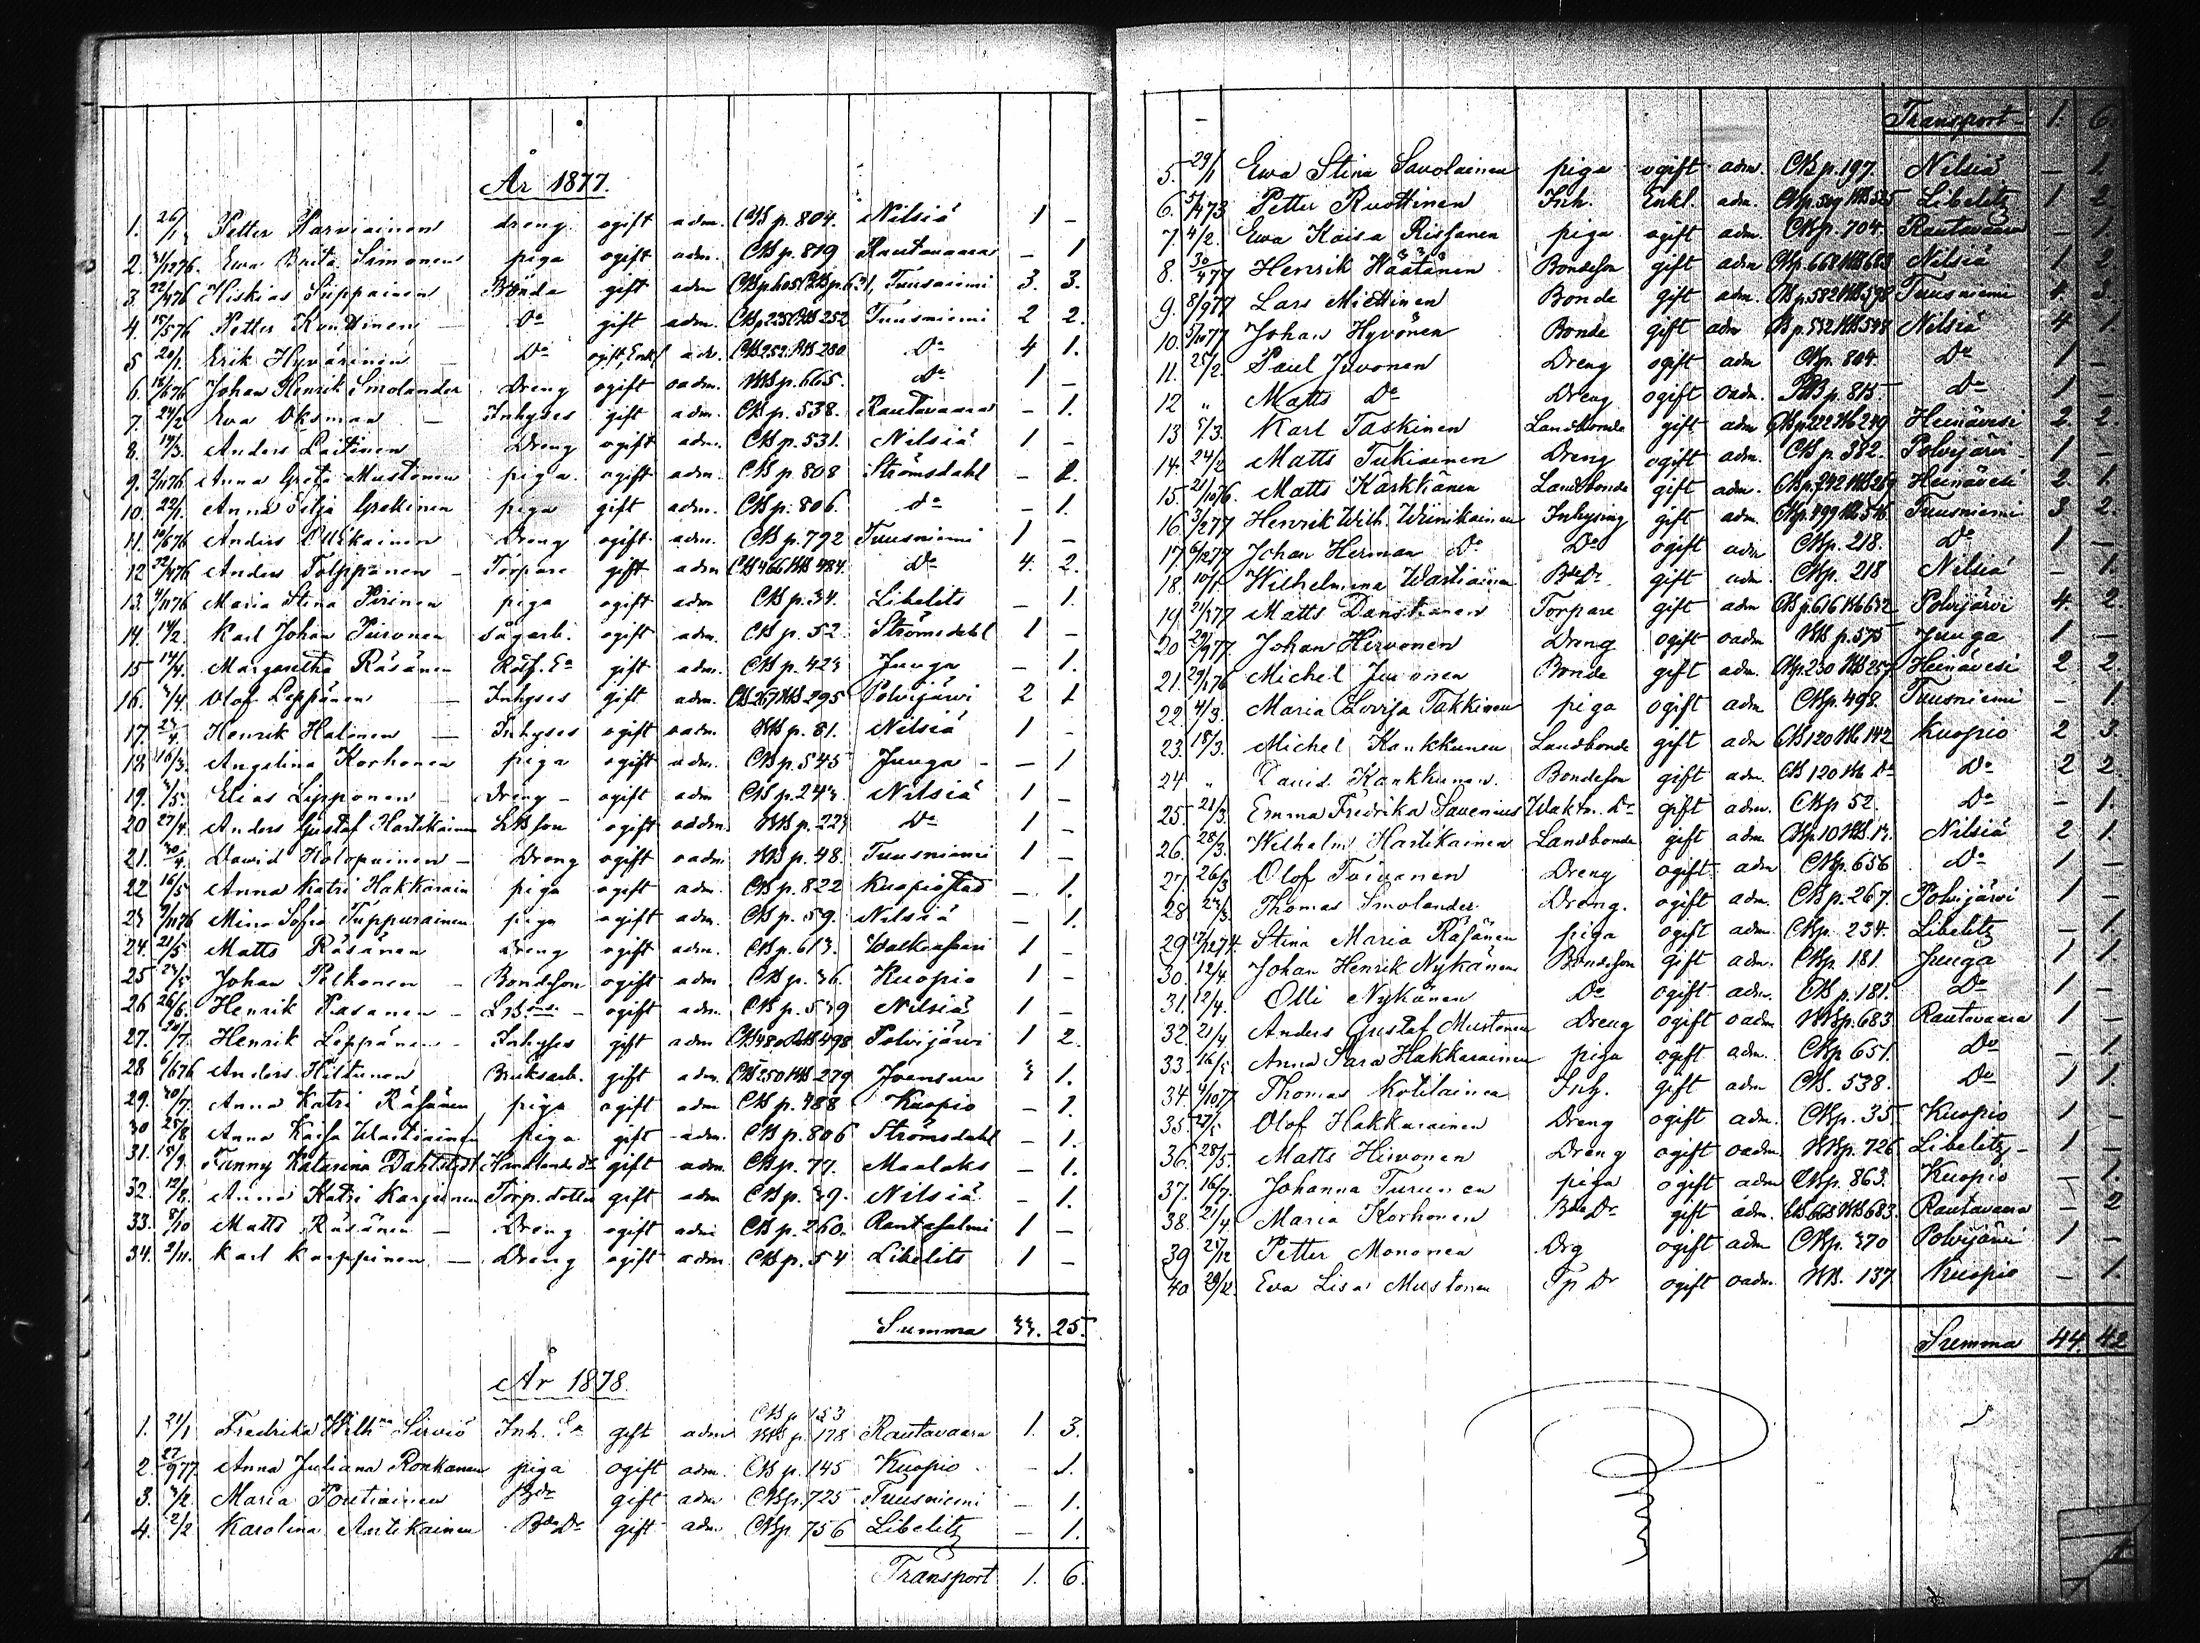 År 1877.
1. 26/1 Petter Karviainen dreng ogift adm. CB p. 804. Nilsiä 1 –
2. Ewa Brita Simonen piga ogift adm. CB p. 819 Rautavaara – 1
3. Hiskias Tuppainen Bonde gift adm Tuusniemi 3. 3.
4. 15/576 Petter Kunttinen Do gift adm. Tuusniemi 2 2.
5 20/1. Erik Hyvärinen Do CB 252. RB 280 Do 4 1.
6. Johan Henrik Smolander Dreng ogift oadm. RB p. 665. Do 1 –
7. 24/2 Eva Oksman Inhyses gift adm. CB p. 538. Rautavaara – 1.
8. 19/3. Anders Laitinen Dreng ogift adm. CB p. 531. Nilsiä 1 –
9. Anna Greta Mustonen piga ogift adm. CB p. 808 Strömsdahl – 1.
10. 22/1. Anna Silja piga gift adm. CB p. 806. do – 1.
11. Anders Dreng ogift adm. CB p. 792 Tuusniemi 1 –
12 Anders Tolppanen Torpare gift adm CB 466 RB 484. Do 4. 2.
13. Maria Stina Pirinen piga ogift adm CB p. 34. Libelits – 1.
14. 14/2. Karl Johan Piironen sågarb. ogift adm. CB p. 52. Strömsdahl 1 –
15 14/4. Margaretha Räsänen gift adm. CB p. 423 Juuga – 1.
16. Olof Leppänen Inhyses gift adm. CB 267 RB 295 Polvijärvi 2 1
17. Henrik Halonen Inhyses ogift oadm. RB p. 81. Nilsiä 1 –
18 16/3. Angelina Korhonen piga ogift adm. CB p. 545 Juuga – 1
19. Elias Lipponen Dreng ogift adm CB p. 243. Nilsiä 1 –
20 27/4. Anders Gustaf Hartikainen LBson ogift oadm. RB p. 223 Do 1 –
21. 30/4 Dawid Holopainen Dreng ogift oadm RB p. 48. Tuusniemi 1 –
22 16/5 Anna Katri Hakkarain piga ogift adm. CB p. 822 Kuopio stad – 1.
23 Mina Sofia Tuppurainen piga ogift adm. CB p. 59. Nilsiä – 1.
24. 21/5 Matts Räsänen Dreng ogift adm. CB p. 613. Walkeasaari 1 –
25 Johan Pelkonen Bondeson ogift adm CB p. 36. Kuopio 1 –
26 26/6. Henrik Pasanen ogift adm. CB p. 539 Nilsiä 1 –
27. Henrik Leppänen Inhyses gift adm CB 480 RB 498 Polvijärvi 1 2.
28 6/676 Anders Hiltunen Bruksarb. gift adm. CB 250 RB 279 Joensuu 3 1.
29. 20/7. Anna Katri Räsänen piga ogift adm CB p. 488 Kuopio – 1.
30 25/8 Anna Kaisa Wartiainen piga gift adm. CB p. 806 Strömsdahl – 1.
31. Fanny Katarina Dahlstedt gift adm. CB p. 77. Maalaks – 1.
32. Anna Katri Karjainen Torp. dotter gift adm CB p. 39. Nilsiä – 1.
33. 8/10 Matts Räsänen Dreng ogift adm CB p. 260. Rantasalmi 1 –
34. 2/11. Karl Karppinen Dreng ogift adm. CB p. 54 Libelits 1 –
Summa 33. 25.
År 1878.
1. 21/1 Fredrika Wilhna Sirviö Inh. gift adm CB p. 153 RB p. 178 Rautavaara 1. 3.
2. 27/977 Anna Juliana Ronkanen piga ogift adm. CB p. 145 Kuopio – 1.
3. Maria Poutiainen gift adm CBp. 725 Tuusniemi – 1.
4. 2/2 Karolina Antikainen Bde Dr gift adm. CBp. 756 Libelitz – 1.
Transport 1. 6.
Transport 1. 6.
5. 29/1 Ewa Stina Savolainen piga ogift adm CB p. 197. Nilsiä – 1.
6. Petter Ruottinen Inh. Enkl. adm. Libelitz 1 2
7. 4/2. Ewa Kaisa Rissanen piga ogift adm. CBp. 704. Rautavaara –
8. Henrik Häätänen Bondeson gift adm Nilsiä 1 2
9. 8/977 Lars Miettinen Bonde gift adm. Tuusniemi 4 3.
10. 5/1077 Johan Hyvönen Bonde gift adm Nilsiä 4 1
11. 25/2. Paul Juvonen Dreng ogift adm CBp. 804. Do 1 –
12 „ Matts Do Dreng ogift oadm. RB p. 815. Do 1 –
13 5/3. Karl Taskinen Landbonde gift adm Heinävesi 2. 2.
14. 24/2 Matts Tukiainen Dreng ogift adm. CB p. 382. Polvijärvi 1 –
15. 21/1076. Matts Karkkänen Landbonde gift adm. Heinävesi 2. 1.
16 Henrik Wilh. Wimikainen Inhysing gift adm. Tuusniemi 3 2.
17. 6/1277 Johan Herman Do Do ogift adm CBp. 218. Do 1 –
18. 10/1. Wilhelmina Wartiainen Bde Dr. gift adm. CBp. 218 Nilsiä – 1.
19. Matts Danskanen Torpare gift adm Polvijärvi 4. 2.
20 Johan Hirvonen Dreng ogift oadm RB p. 575 Juuga 1 –
21. Michel Juvonen Bonde gift adm. CBp. 230 RB 257 Heinävesi 2 2.
22 4/3. Maria Lovisa Takkinen piga ogift adm CBp. 498. Tuusniemi – 1.
23. 18/3. Michel Kankkunen Landbonde gift adm CB 120 RB 142 Kuopio 2 3.
24 „ David Kankkunen. Bondeson gift adm. CB 120 RB Do Do 2 2.
25. 21/3. Emma Fredrika Savenius Waktm. Dr gift adm. CBp 52. Do – 1.
26. 28/3. Wilhelm Hartikainen Landbonde gift adm Nilsiä 2 1.
27. 26/3 Olof Toivanen Dreng ogift adm CBp. 656 Do 1 –
28 Thomas Smolander Dreng. ogift adm. CB p. 267. Polvijärvi 1 –
29 Stina Maria Räsänen piga ogift adm. CBp. 234. Libelitz – 1.
30. 12/4. Johan Henrik Nykänen Bondeson gift adm. CBp. 181. Juuga 1 1.
31. 12/4. Olli Nykänen Do ogift adm. CB p. 181. Do 1 –
32. 21/4 Anders Gustaf Mustonen Dreng ogift oadm RBp. 683. Rautavaara 1 –
33. Anna Sara Hakkarainen piga ogift adm. CBp 651. Do – 1.
34. Thomas Kotilainen Inh. gift adm CB. 538. Do 1 1.
35 Olof Hakkarainen Dreng ogift adm. CBp. 35 Kuopio 1 –
36. 28/5. Matts Hirvonen Dreng ogift oadm. RBp. 726 Libelitz 1 –
37. 16/7. Johanna Turunen piga ogift adm CBp. 863. Kuopio – 1.
38. 21/4. Maria Korhonen Bde Dr gift adm. CB 663 RB 683. Rautavaara – 2
39 Petter Mononen Drg ogift adm CBp. 370 Polvijärvi 1 –
40 29/12. Eva Lisa Mustonen Tp Dr ogift oadm. RB. 137. Kuopio – 1.
Summa 44. 42